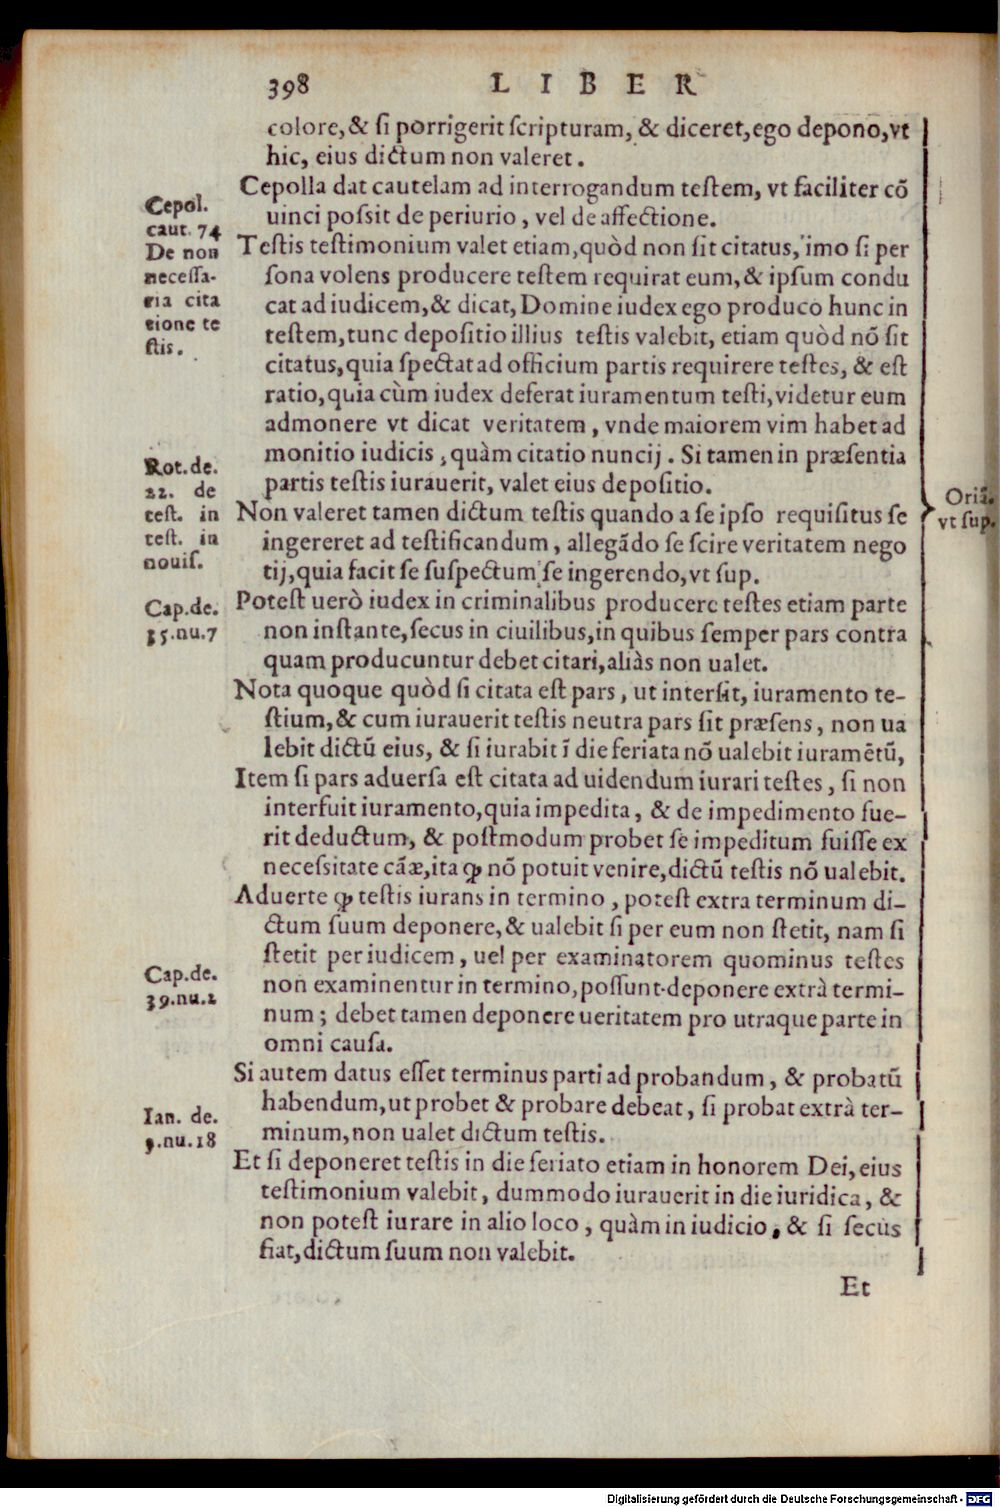 398 LIBER
colore, & ſi porrigerit ſcripturam, & diceret, ego depono, vt
hic, eius dictum non valeret.
Cepolla dat cautelam ad interrogandum teſtem, vt faciliter cō
uinci poſsit de periurio, vel de affectione.
Cepol.
caut. 74
Teſtis teſtimonium valet etiam, quòd non ſit citatus, imo ſi per
ſona volens producere teſtem requirat eum, & ipſum condu
cat ad iudicem, & dicat, Domine iudex ego produco hunc in
teſtem, tunc depoſitio illius teſtis valebit, etiam quòd nō ſit
citatus, quia ſpectat ad officium partis requirere teſtes, & eſt
ratio, quia cùm iudex deferat iuramentum teſti, videtur eum
admonere vt dicat veritatem, vnde maiorem vim habet ad
monitio iudicis, quàm citatio nuncij. Si tamen in præſentia
partis teſtis iurauerit, valet eius depoſitio.
De non
neceſſa-
ria cita
tione te
ſtis.
Non valeret tamen dictum teſtis quando a ſe ipſo requiſitus ſe
ingereret ad teſtificandum, allegādo ſe ſcire veritatem nego
tij, quia facit ſe ſuſpectum ſe ingerendo, vt ſup.
Rot. de.
22. de
teſt. in
teſt. in
nouiſ.
Oriā.
vt ſup.
Poteſt uerò iudex in criminalibus producere teſtes etiam parte
non inſtante, ſecus in ciuilibus, in quibus ſemper pars contra
quam producuntur debet citari, aliàs non ualet.
Cap. de.
35. nu. 7
Nota quoque quòd ſi citata eſt pars, ut interſit, iuramento te-
ſtium, & cum iurauerit teſtis neutra pars ſit præſens, non ua
lebit dictū eius, & ſi iurabit ī die feriata nō ualebit iuramētū,
Item ſi pars aduerſa eſt citata ad uidendum iurari teſtes, ſi non
interfuit iuramento, quia impedita, & de impedimento fue-
rit deductum, & poſtmodum probet ſe impeditum fuiſſe ex
neceſsitate cāæ, ita ꝙ nō potuit venire, dictū teſtis nō ualebit.
Aduerte ꝙ teſtis iurans in termino, poteſt extra terminum di-
ctum ſuum deponere, & ualebit ſi per eum non ſtetit, nam ſi
ſtetit per iudicem, uel per examinatorem quominus teſtes
non examinentur in termino, poſſunt deponere extrà termi-
num; debet tamen deponere ueritatem pro utraque parte in
omni cauſa.
Cap. de.
39. nu. 2
Si autem datus eſſet terminus parti ad probandum, & probatū
habendum, ut probet & probare debeat, ſi probat extrà ter-
minum, non ualet dictum teſtis.
Ian. de.
9. nu. 18
Et ſi deponeret teſtis in die feriato etiam in honorem Dei, eius
teſtimonium valebit, dummodo iurauerit in die iuridica, &
non poteſt iurare in alio loco, quàm in iudicio, & ſi ſecùs
fiat, dictum ſuum non valebit.
Et
Digitalisierung gefördert durch die Deutsche Forschungsgemeinschaft - DFG